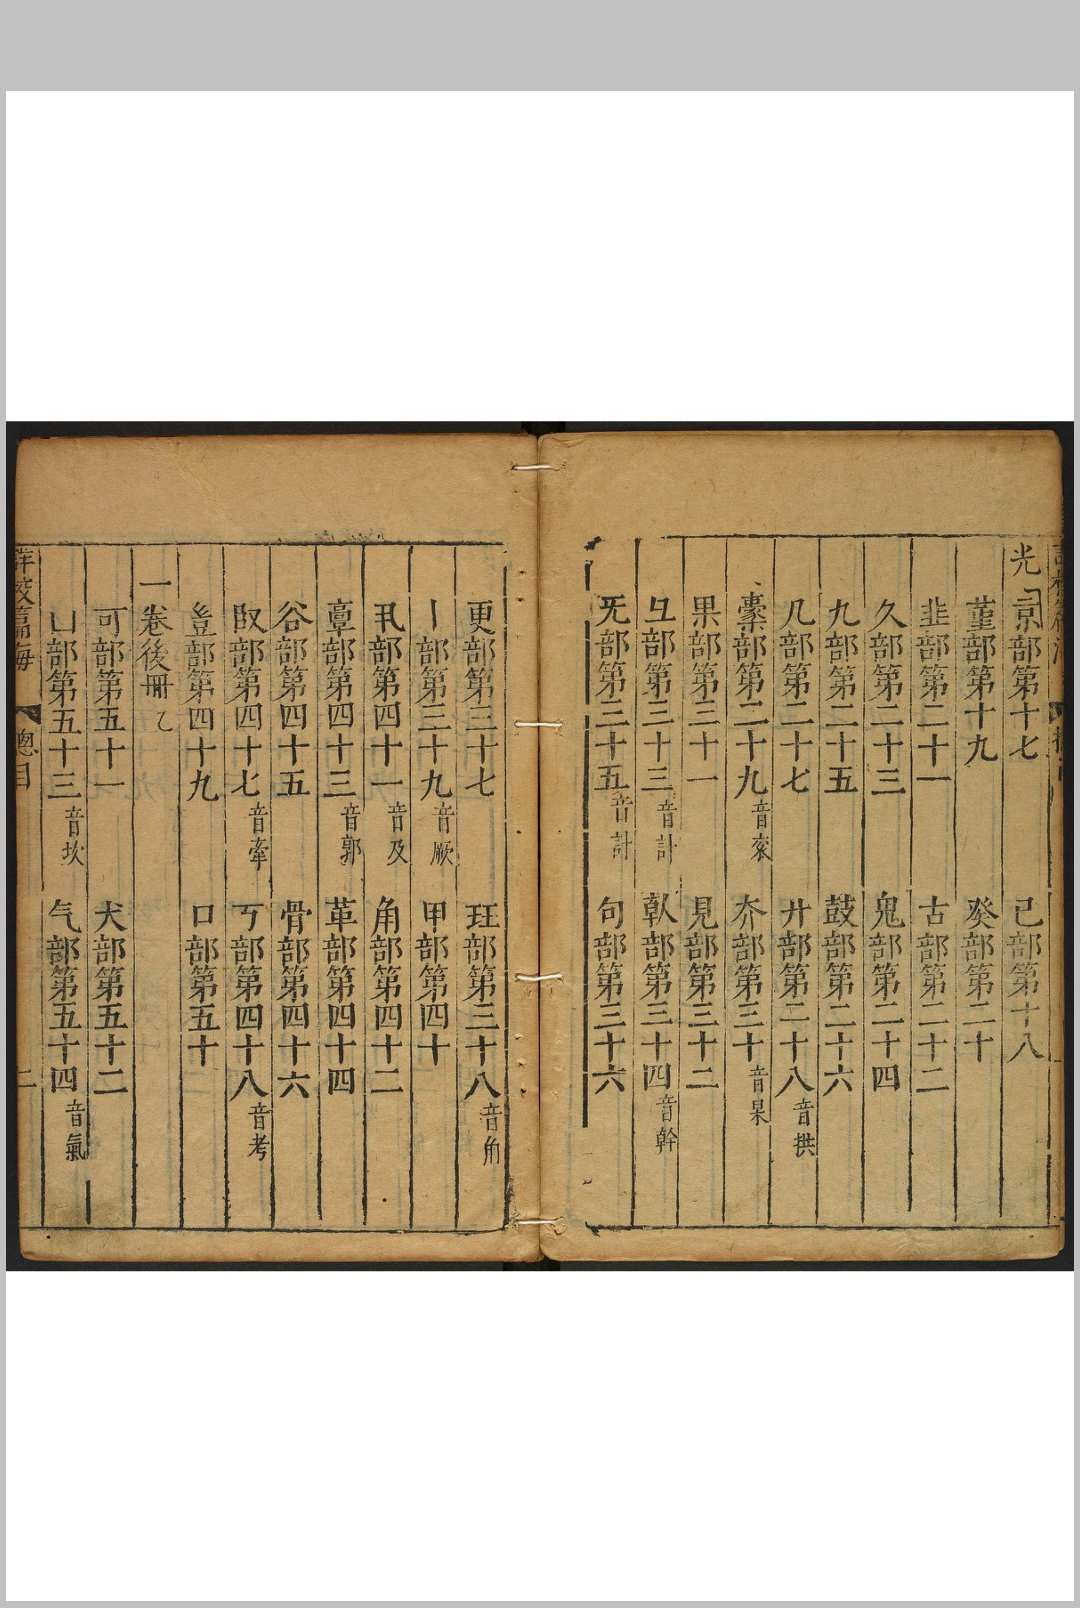 光 京部第十七 己部第十八
堇部第十九 癸部第二十
韭部第二十一 古部第二十二
久部第二十三 鬼部第二十四
九部第二十五 鼓部第二十六
几部第二十七 廾部第二十八音拱
橐部第二十九音衮 夰部第三十音杲
果部第三十一 見部第三十二
彑部第三十三音計 倝部第三十四音幹
旡部第三十五音計 句部第三十六
更部第三十七 玨部第三十八音角
亅部第三十九音厥 甲部第四十
丮部第四十一音及 角部第四十二
𩫏部第四十三音郭 革部第四十四
谷部第四十五 骨部第四十六
臤部第四十七音牽 丂部第四十八音考
豈部第四十九 口部第五十
一卷後冊 乙
可部第五十一 犬部第五十二
凵部第五十三音坎 气部第五十四音氣
詳校篇海 總目 二